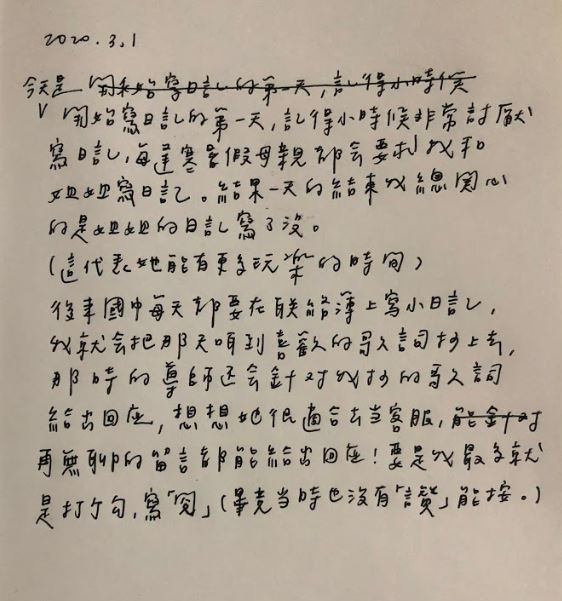 2020.3.1
今天是 開始寫日記的第一天,記得小時候
V 開始寫日記的第一天,記得小時候非常討厭
寫日記,每逢寒暑假母親都会要求我和
姐姐寫日記。結果一天的結束我總関心
的是姐姐的日記寫了沒。
(這代表她能有更多玩樂的時間)
後來國中每天都要在联絡簿上寫小日記,
我就会把那天唱到喜歡的歌詞抄上去,
那時的導師还会針对我抄的歌詞
給出回应,想想她很適合去当客服,能針对
再無聊的留言都能給出回应!要是我最多就
是打个勾,寫「閱」(畢竟当時也沒有「讚」能按。)